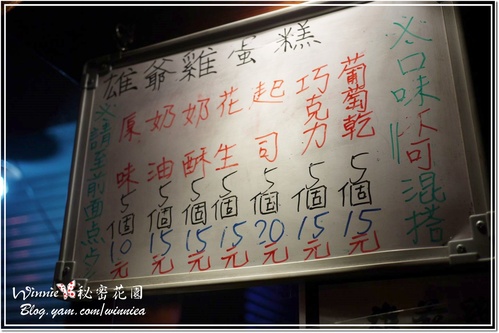 雄爺雞蛋糕
※請至前面點
原味5個10元
奶油5個15元
奶酥5個15元
花生5個15元
起司5個20元
巧克力5個15元
葡萄乾5個15元
※口味不可混搭
Winnie 秘密花園
Blog.yam.com/winniea